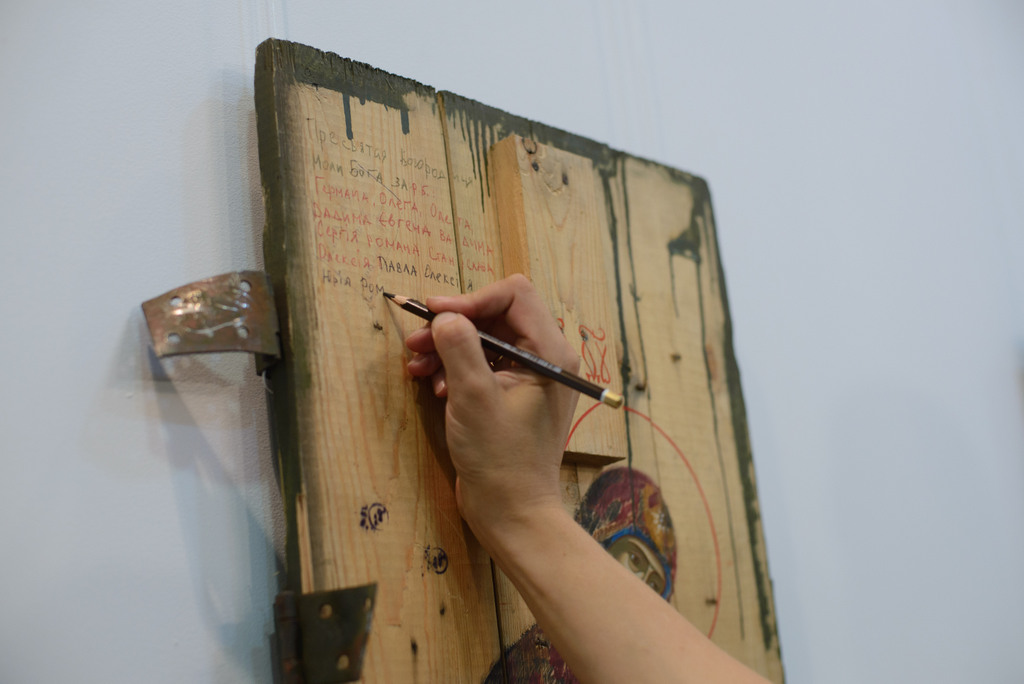 Пресвятая Богородиця
моли Бога за р.б.
Германа, Олега, Олега,
Вадима Євгена Вадима
Сергія Романа Станіслава
Олексія Павла Олексія
Ром